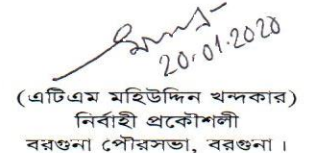 20.01.2020
(এটিএম মহিউদ্দিন খন্দকার)
নির্বাহী প্রকৌশলী
বরগুনা পৌরসভা, বরগুনা।